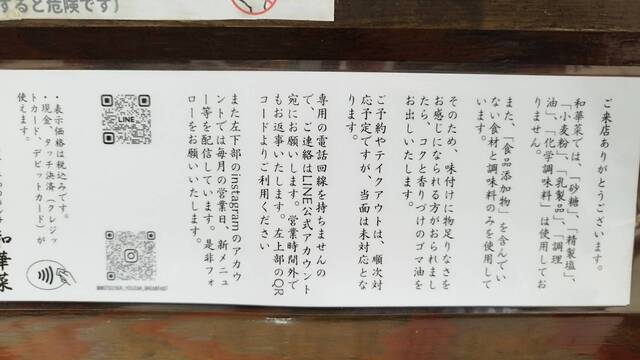 すると危険です)
ご来店ありがとうございます。
和華菜では、「砂糖」、「精製塩」、
「小麦粉」、「乳製品」、「調理
油」、「化学調味料」は使用してお
りません。
また、「食品添加物」を含んでい
ない食材と調味料のみを使用して
います。
そのため、味付けに物足りなさを
お感じになられる方がおられまし
たら、コクと香りづけのゴマ油を
お出しいたします。
ご予約やテイクアウトは、順次対
応予定ですが、当面は未対応とな
ります。
専用の電話回線を持ちませんの
で、ご連絡はLINE公式アカウント
宛にお願いします。営業時間外で
もお返事いたします。左上部のQR
コードよりご利用ください
また左下部のInstagramのアカウ
ントでは毎月の営業日、新メニュ
ー等を配信しています。是非フォ
ローをお願いいたします。
LINE
・表示価格は税込みです。
・現金、タッチ決済(クレジッ
トカード、デビットカード)が
使えます。
和華菜